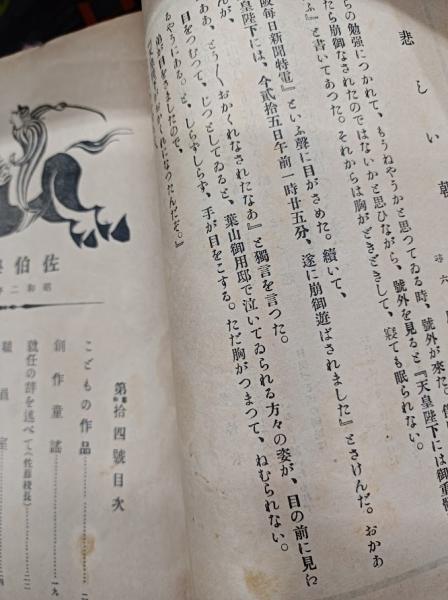 悲しい朝
尋六
らの勉強につかれて、もうねやうかと思つてゐる時、號外が來た。
たら崩御なされたのではないかと思ひながら、號外を見ると『天皇陛下には御重態
ふ』と書いてあつた。それからは胸がどきどきして、寢ても眠られない。
阪每日新聞特電』といふ聲に目がさめた。續いて、
皇陛下には、今貳拾五日午前一時廿五分、遂に崩御遊ばされました』とさけんだ。おかあ
んが、
ああ、とう〳〵おかくれなされたなあ』と獨言を言つた。
目をつむつて、じつとしてゐると、葉山御用邸で泣いてゐられる方々の姿が、目の前に見
るやうにある。と、しらずしらず、手が目をこする。ただ胸がつまつて、ねむられない。
弟が目をさましたので、
かくれになつたんだぞ。』
佐伯
昭和二
第拾四號目次
こどもの作品
創作童謠 一九
就任の辭を述べて(佐藤校長) 二二
職員室